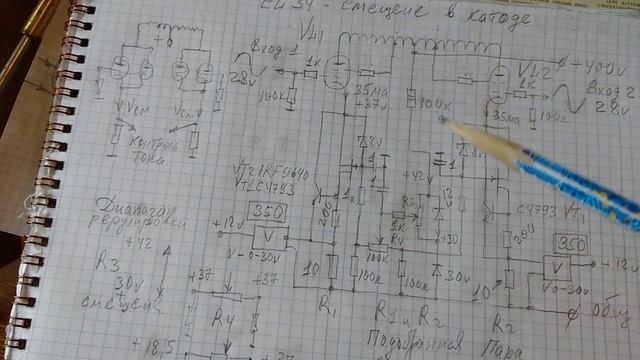 EL34 - смещение в катоде
VL1
+0
Вход 1
28v
1к
100к
35ма
+37v
VL2
+400v
Вход 2
28v
1к
35ма
100к
100к
Vсм
Vсм
Контроль
тока
VT2 IRF9640
VT1 C4793
1к
200
+42
R3
1к
R4
+30
30v
C4793 VT1
200
350
350
+12v
V
V-0-30v
V
+12v
V0-30v
Диапазон
регулировки
+42
R3
30v
смещен
+37
+37
R4
+18,5
+37
10
100к
100к
100к
10
R1
R1 и R2
R2
Подобранная
Пара
Общ